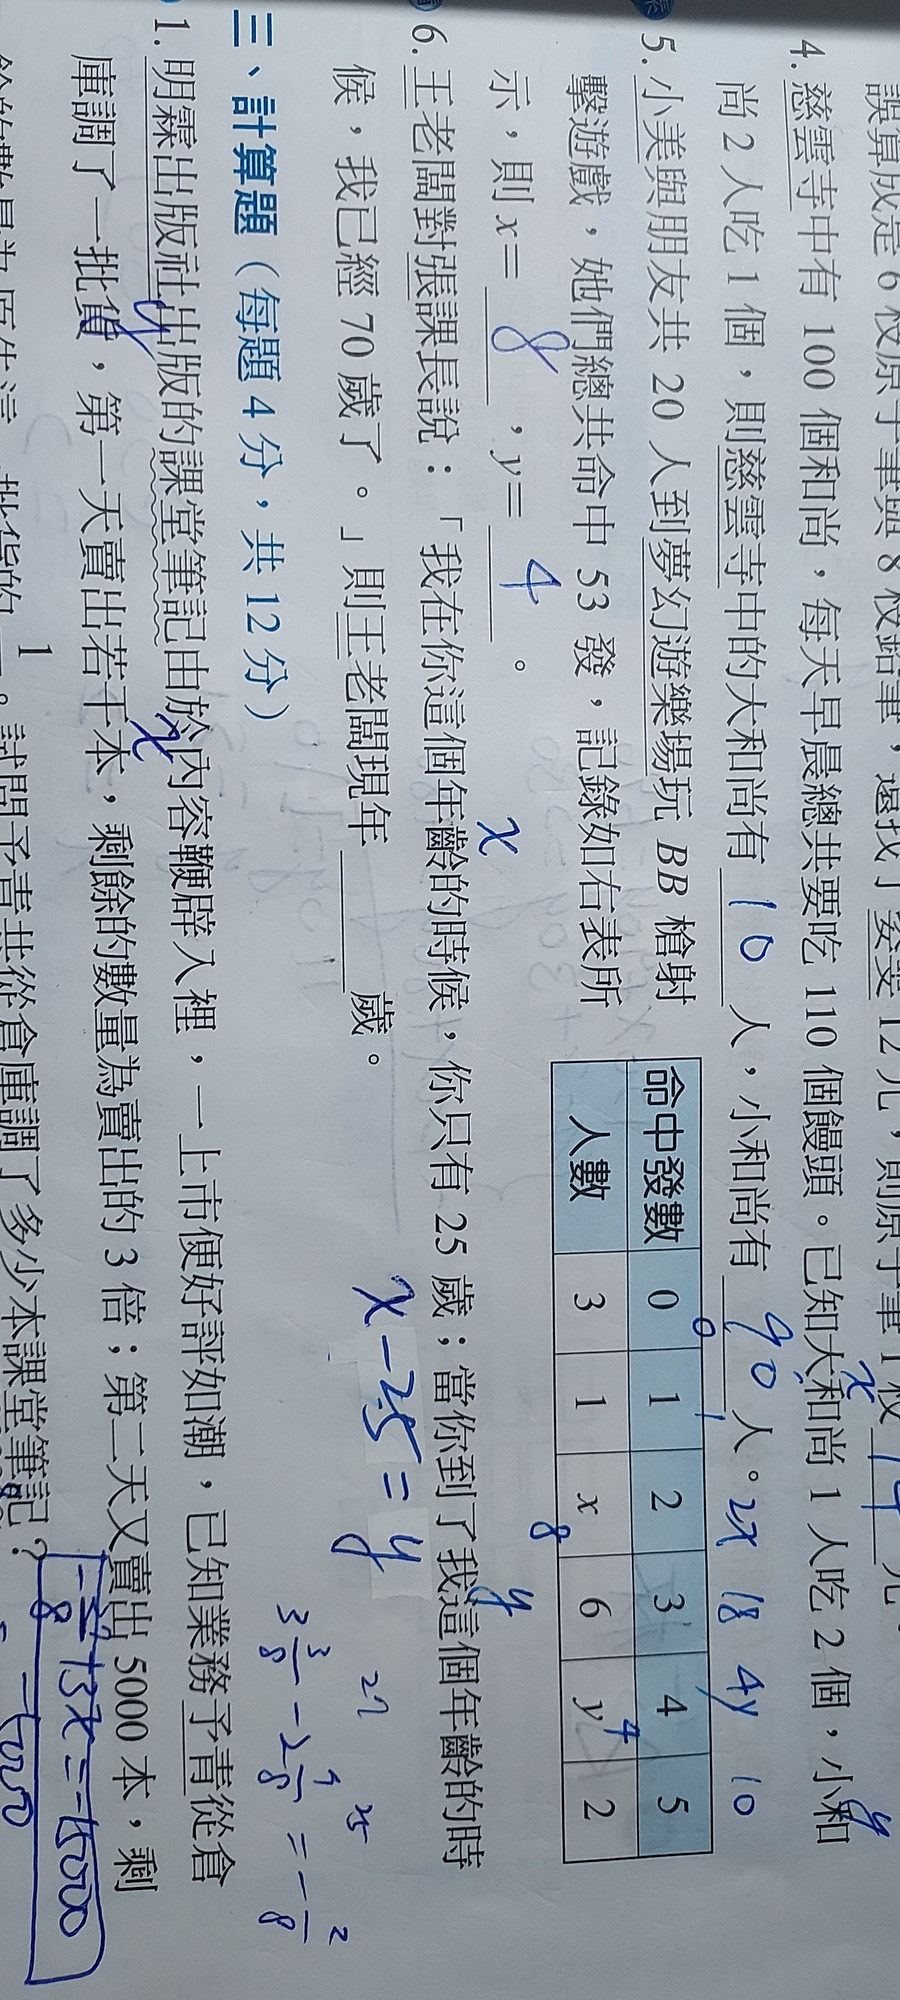 誤算成是 6 枝原子筆與 8 枝鉛筆，還找了姿雯 12 元，則原子筆 1 枝 元
4. 慈雲寺中有 100 個和尚，每天早晨總共要吃 110 個饅頭。已知大和尚 1 人吃 2 個，小和
x y
尚 2 人吃 1 個，則慈雲寺中的大和尚有 10 人，小和尚有 90 人。
5. 小美與朋友共 20 人到夢幻遊樂場玩 BB 槍射
擊遊戲，她們總共命中 53 發，記錄如右表所
示，則 x= 8 ，y= 4 。
0 1 2x 18 4y 10
命中發數 0 1 2 3 4 5
人數 3 1 x 6 y 2
8 4
6. 王老闆對張課長說：「我在你這個年齡的時候，你只有 25 歲；當你到了我這個年齡的時
x y
候，我已經 70 歲了。」則王老闆現年 歲。
x-25=y
三、計算題（每題 4 分，共 12 分）
1. 明霖出版社出版的課堂筆記由於內容鞭辟入裡，一上市便好評如潮，已知業務予青從倉
庫調了一批貨，第一天賣出若干本，剩餘的數量為賣出的 3 倍；第二天又賣出 5000 本，剩
y x
試問予青共從倉庫調了多少本課堂筆記？